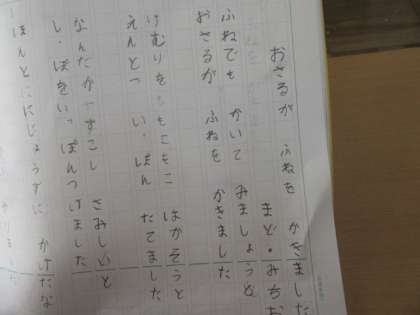 おさるが ふねを かきました
まど・みちお
ふねでも かいて みましょうと
おさるが ふねを かきました
けむりを もこもこ はかそうと
えんとつ いっぽん たてました
なんだか すこし さみしいと
しっぽを いっぽん つけました
ほんとにじょうずに かけたな